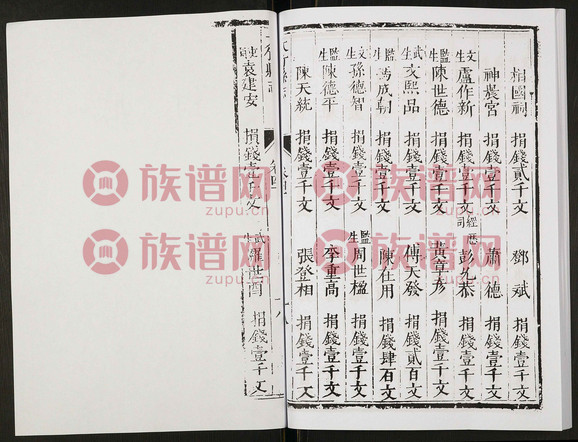 相國祠 捐錢貳千文 鄧斌 捐錢壹千文
神農宮 捐錢壹千文 蕭德 捐錢壹千文
文生盧作新 捐錢壹千文 經歷司彭允恭 捐錢壹千文
監生陳世德 捐錢壹千文 黃章彥 捐錢壹千文
武生文熙品 捐錢壹千文 傅天發 捐錢貳百文
監生馮成勛 捐錢壹千文 陳在用 捐錢肆百文
文生孫德智 捐錢壹千文 監生周世楹 捐錢壹千文
監生陳德平 捐錢壹千文 李重高 捐錢壹千文
陳天統 捐錢壹千文 張登相 捐錢壹千文
縣志
卷四
十八
袁建安 捐錢壹千文 武生羅世酉 捐錢壹千文
族谱网
zupu.cn
族谱网
zupu.cn
族谱网
zupu.cn
族谱网
zupu.cn